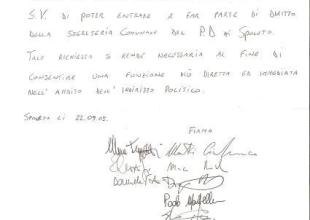 S.V. DI POTER ENTRARE A FAR PARTE DI DIRITTO
DELLA SEGRETERIA COMUNALE DEL P.D. di SPOLETO.
TALE RICHIESTA SI RENDE NECESSARIA AL FINE DI
CONSENTIRE UNA FUNZIONE PIÙ DIRETTA ED IMMEDIATA
NELL'AMBITO DELL'INDIRIZZO POLITICO.
SPOLETO LI 22.09.08.
FIRMA